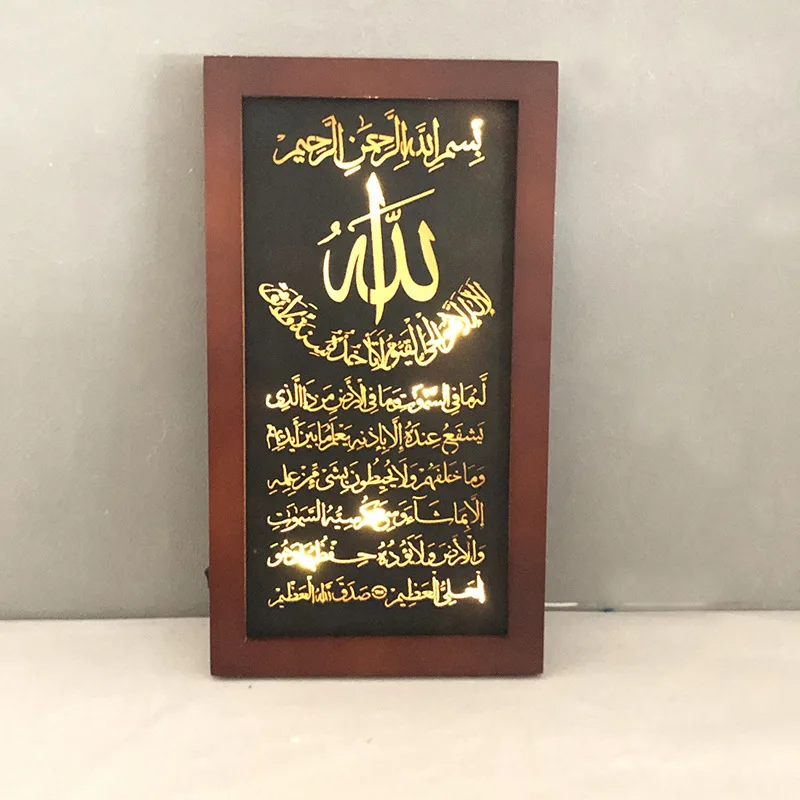 بِسْمِ اللَّهِ الرَّحْمَنِ الرَّحِيمِ
اللَّه
لَا إِلَهَ إِلَّا هُوَ الْحَيُّ الْقَيُّومُ لَا تَأْخُذُهُ سِنَةٌ وَلَا نَوْمٌ
لَهُ مَا فِي السَّمَوَتِ وَمَا فِي الْأَرْضِ مَنْ ذَا الَّذِي
يَشْفَعُ عِنْدَهُ إِلَّا بِإِذْنِهِ يَعْلَمُ مَا بَيْنَ أَيْدِيهِمْ
وَمَا خَلْفَهُمْ وَلَا يُحِيطُونَ بِشَيْءٍ مِنْ عِلْمِهِ
إِلَّا بِمَا شَاءَ وَسِعَ كُرْسِيُّهُ السَّمَوَاتِ
وَالْأَرْضَ وَلَا يَؤُدُهُ حِفْظُهُمَا وَهُوَ
الْعَلِيُّ الْعَظِيمُ صَدَقَ اللَّهُ الْعَظِيمُ